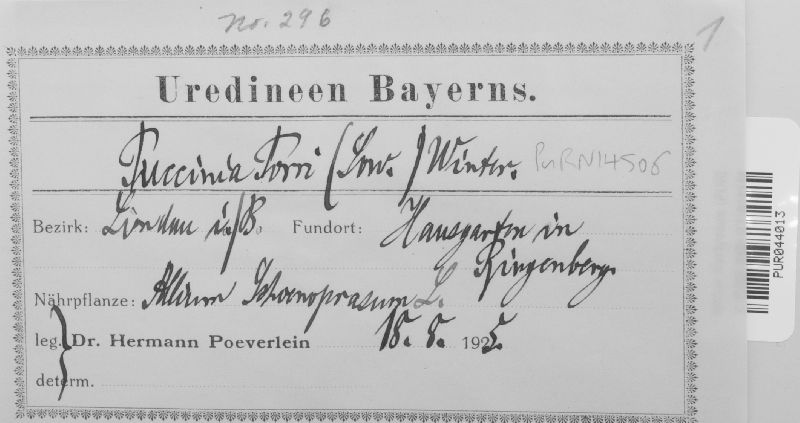 No. 296
1
Uredineen Bayerns.
Puccinia Porri (Sow.) Winter. PURN14506
Bezirk: Lindau i./B. Fundort: Hausgarten in
Ringenberg.
Nährpflanze: Allium Schoenoprasum L.
leg. Dr. Hermann Poeverlein 18. 8. 1925.
determ.
PUR044013